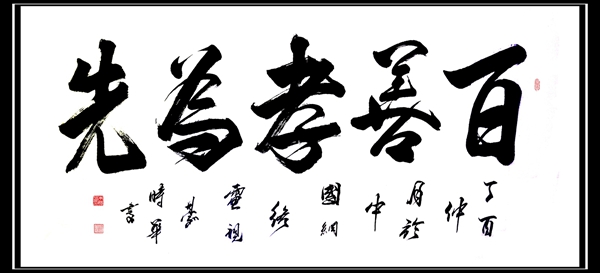 百善孝為先
丁酉
仲
月於
中
國網
絡
電視
臺
時
書